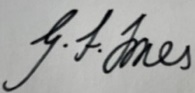 G. F. Jones